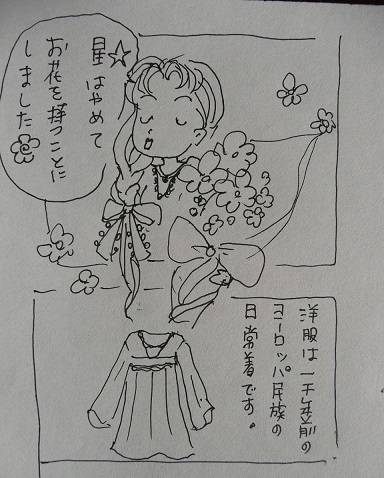 星☆はやめて
お花を持つことに
しました
洋服は一千年前の
ヨーロッパ民族の
日常着です。